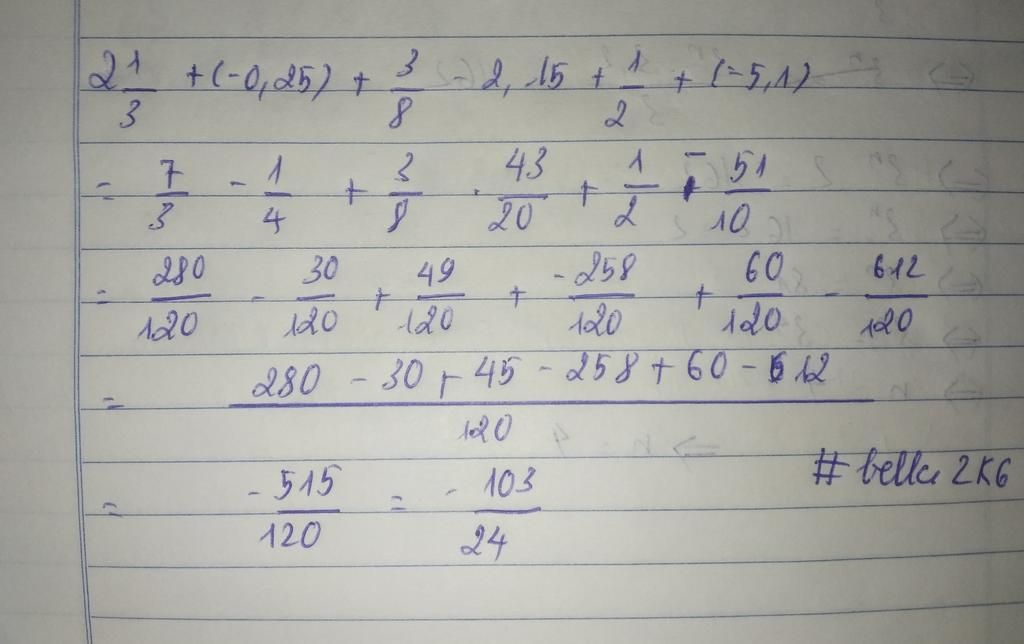 2 1/3 + (-0,25) + 3/8 - 2,15 + 1/2 + (-5,1)
= 7/3 - 1/4 + 3/8 - 43/20 + 1/2 - 51/10
= 280/120 - 30/120 + 49/120 + -258/120 + 60/120 - 612/120
= 280 - 30 + 45 - 258 + 60 - 612/120
= -515/120 = -103/24
# bella 2K6